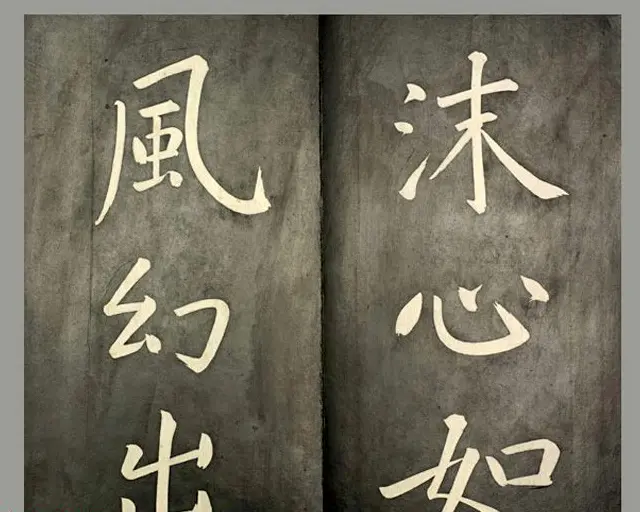 沫心如
風幻出